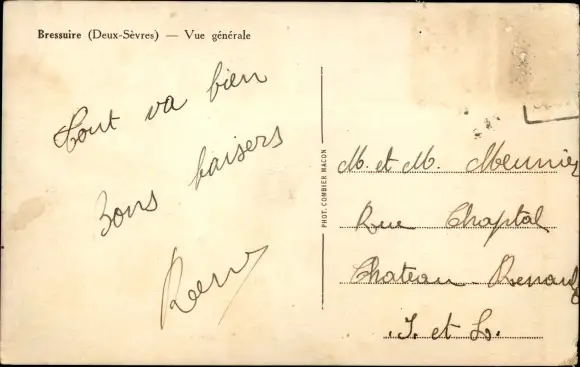 Bressuire (Deux-Sèvres) — Vue générale
Tout va bien
Bons baisers
PHOT. COMBIER MACON
M. et M. Meunier
Rue Chaptal
Chateau-Renault
I. et L.